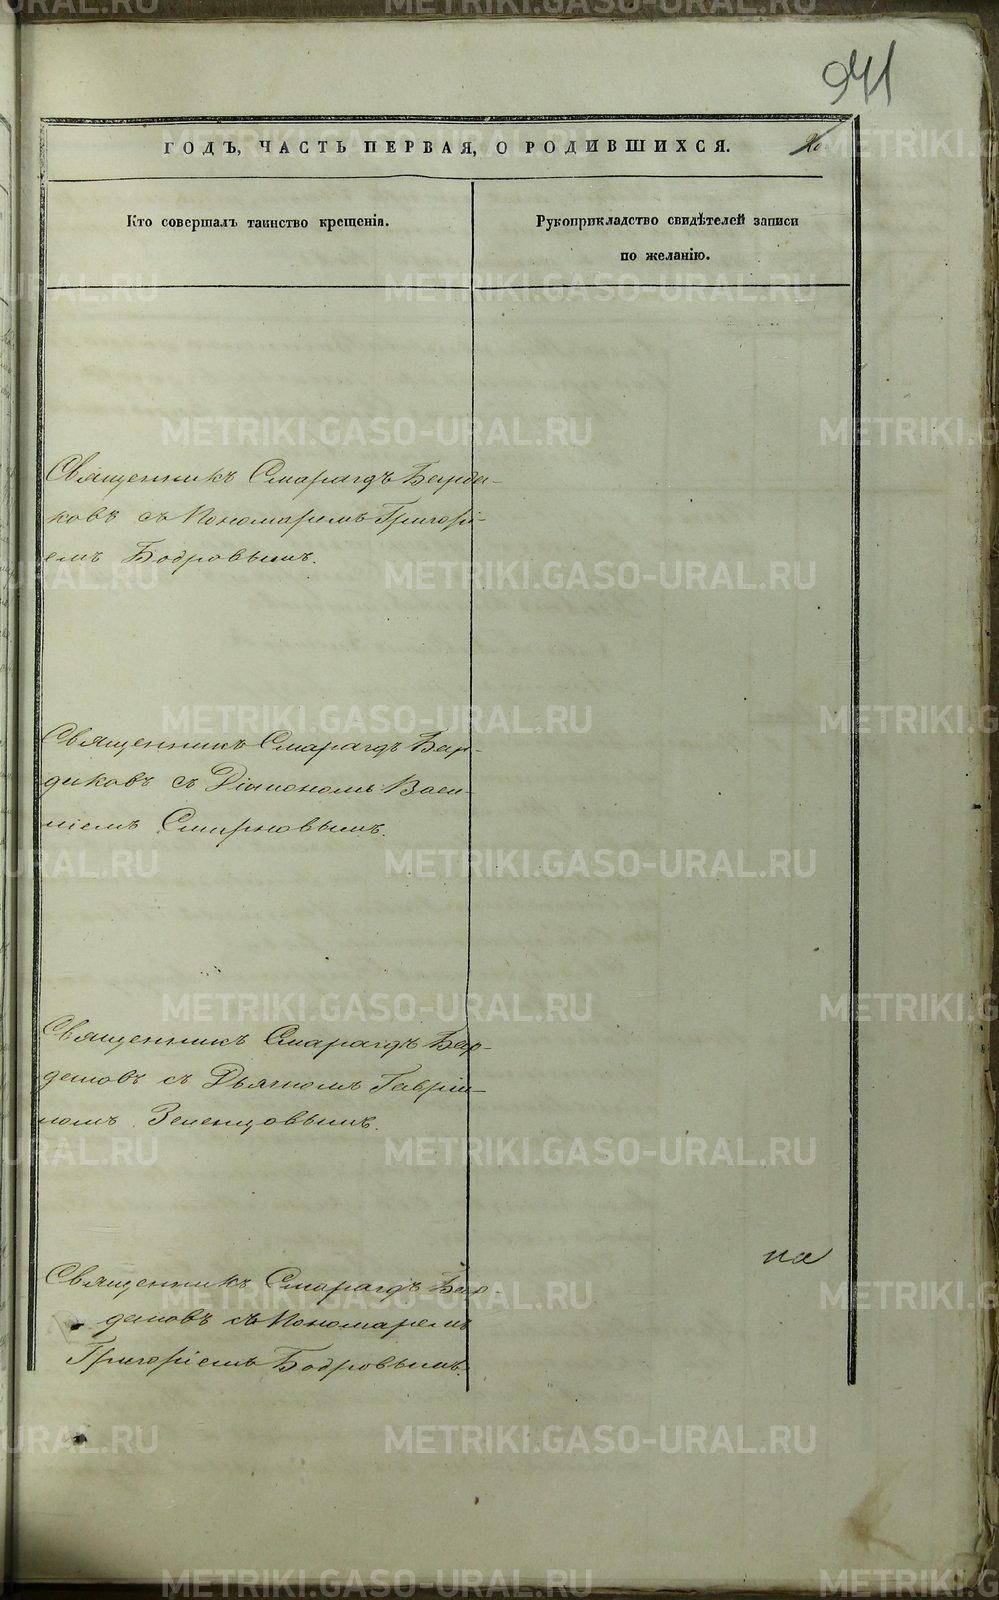 941
ГОДЪ, ЧАСТЬ ПЕРВАЯ, О РОДИВШИХСЯ.
Кто совершалъ таинство крещенія.
Рукоприкладство свидѣтелей записи
по желанію.
Священникъ Смарагдъ Барда-
ковъ съ Пономаремъ Григорі-
емъ Бодровымъ.
Священникъ Смарагдъ Бар-
даковъ съ Діакономъ Васи-
ліемъ Смирновымъ.
Священникъ Смарагдъ Бар-
даковъ съ Дьячкомъ Гавріи-
ломъ Зеленцовымъ.
на
Священникъ Смарагдъ Бар-
даковъ съ Пономаремъ
Григоріемъ Бодровымъ.
METRIKI.GASO-URAL.RU